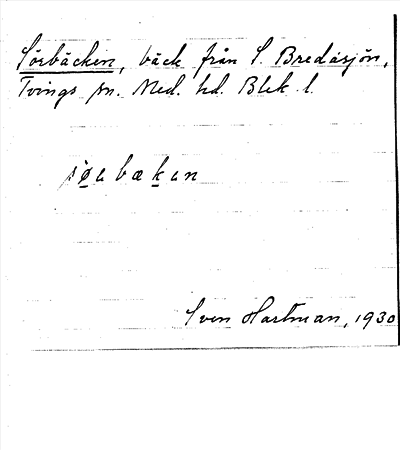 Sörbäcken, bäck från S. Bredasjön,
Tvings sn. Med. hd. Blek. l.
Sven Hartman, 1930